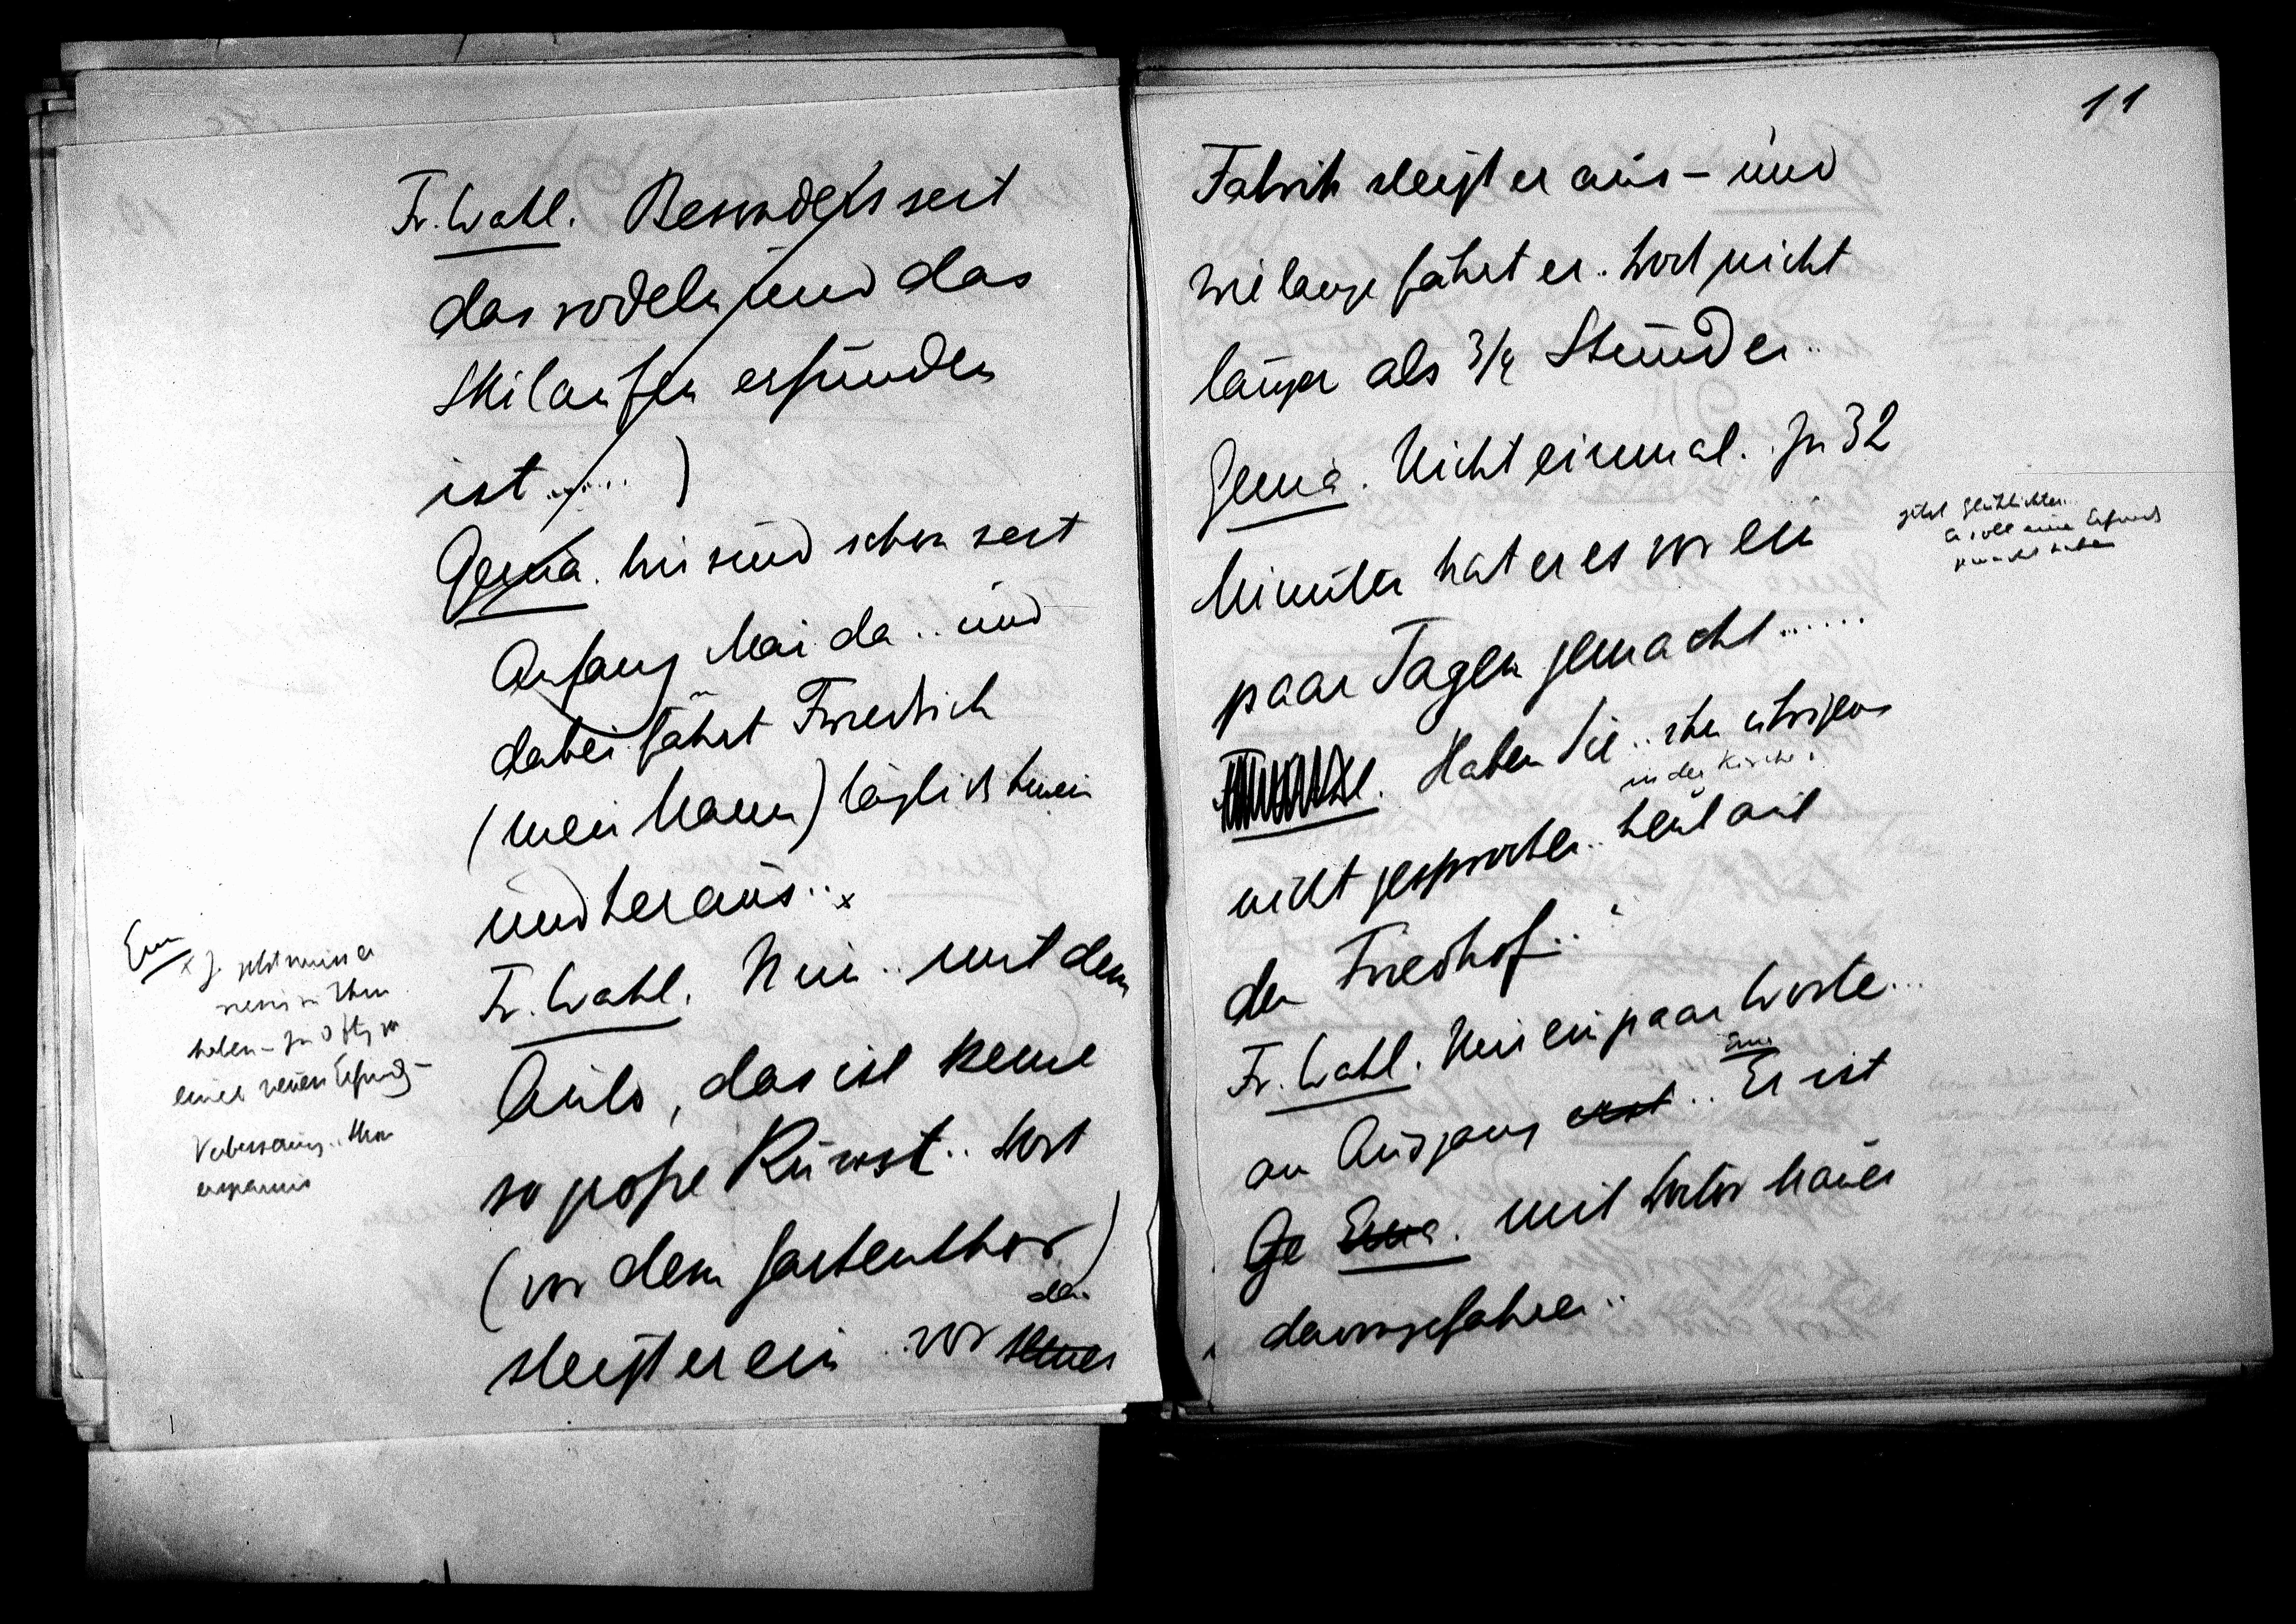 Fr. Wahl. Besonders seit
das rodeln und das
Skilaufen erfunden
ist......)
Genia. Wir sind schon seit
Anfang Mai da.. und
dabei fährt Friedrich
(mein Mann) täglich hinein
und heraus.. x
Fr. Wahl. Nun.. mit dem
Auto, das ist keine
so große Kunst.. dort
(vor dem Gartenthor)
steigt er ein.. vor seiner
der
Erna
Verbesserung..
11
Fabrik steigt er aus - und
wie lange fährt er.. doch nicht
länger als 3/4 Stunden..
Genia. Nicht einmal.. In 32
Minuten hat er es vor ein
paar Tagen gemacht......
Haben Sie.. ihn übrigens
in der Kirche?
nicht gesprochen.. heut auf
dem Friedhof..?
Fr. Wahl. Nur ein paar Worte...
am Ausgang erst.. Erna Er ist
Ge Erna. mit Doctor Mauer
davongefahren..
er soll eine
gemacht haben